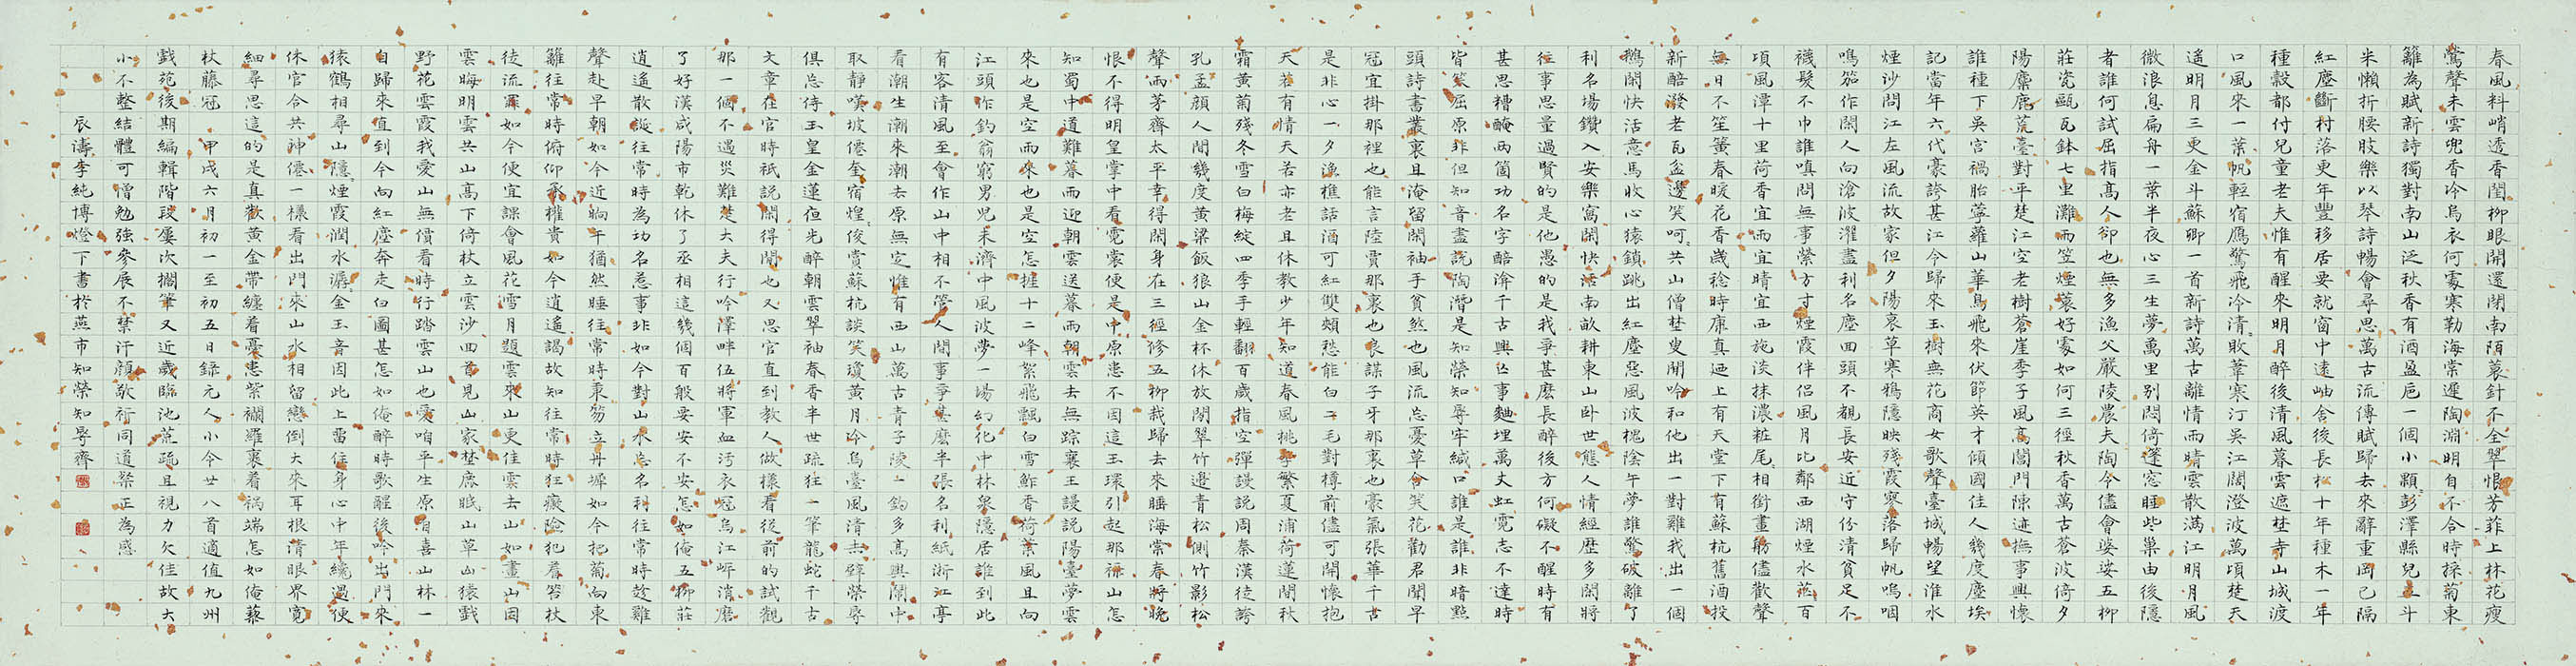 春風料峭透香閨柳眼開還閉南陌蓑針不全翠恨芳菲上林花瘦
鶯聲未雲兜香冷烏衣何處寒勒海棠遲陶淵明自不合時採菊東
籬為賦新詩獨對南山泛秋香有酒盈卮一個小顆彭澤縣兒五斗
米懶折腰肢樂以琴詩暢會尋思萬古流傳賦歸去來辭重岡已隔
紅塵斷村落更年豐移居要就窗中遠岫舍後長松十年種木一年
種穀都付兒童老夫惟有醒來明月醉後清風暮雲遮埜寺山城渡
口風來一葉帆輕宿鴈驚飛冷清敗葦寒汀吳江闊澄波萬頃楚天
遙明月三更金斗蘇卿一首新詩萬古離情雨晴雲散滿江明月風
微浪息扁舟一葉半夜心三生夢萬里別悶倚蓬窓睡些巢由後隱
者誰何試屈指高人卻也無多漁父嚴陵農夫陶令儘會婆娑五柳
莊瓷甌瓦鉢七里灘雨笠煙蓑好處如何三徑秋香萬古蒼波倚夕
陽麋鹿荒臺對平楚江空老樹蒼崖季子風高閶門陳迹撫事興懷
誰種下吳宮禍胎薴蘿山華鳥飛來伏節英才傾國佳人幾度塵埃
記當年六代豪誇甚江令歸來玉樹無花商女歌聲臺城暢望淮水
煙沙問江左風流故家但夕陽衰草寒鴉隱映殘霞寥落歸帆嗚咽
鳴笳作閑人向滄波濯盡利名塵回頭不覩長安近守份清貧足不
襪髮不巾誰嗔問無事縈方寸煙霞伴侶風月比鄰西湖煙水茫百
頃風潭十里荷香宜雨宜晴宜西施淡抹濃粧尾相銜畫舫儘歡聲
無日不笙簧春暖花香歲稔時康真迺上有天堂下有蘇杭舊酒投
新醅潑老瓦盆邊笑呵共山僧埜叟閒吟和他出一對雞我出一個
鵝閑快活意馬收心猿鎖跳出紅塵惡風波槐陰午夢誰驚破離了
利名場鑽入安樂窩閑快活南畝耕東山卧世態人情經歷多閑將
往事思量過賢的是他愚的是我爭甚麼長醉後方何礙不醒時有
甚思糟醃兩箇功名字醅渰千古興亡事麯埋萬丈虹霓志不達時
皆笑屈原非但知音盡說陶潛是知榮知辱牢緘口誰是誰非暗點
頭詩書叢裏且淹留閑袖手貧煞也風流忘憂草含笑花勸君閑早
冠宜掛那裡也能言陸賈那裏也良謀子牙那裏也豪氣張華千古
是非心一夕漁樵話酒可紅雙頰愁能白二毛對樽前儘可開懷抱
天若有情天若亦老且休教少年知道春風桃李繁夏浦荷蓮間秋
霜黃菊殘冬雪白梅綻四季手輕翻百歲指空彈謾說周秦漢徒誇
孔孟顏人間幾度黃粱飯狼山金杯休放閑翠竹邊青松側竹影松
聲兩茅齋太平幸得閑身在三徑修五柳栽歸去來睡海棠春將晚
恨不得明皇掌中看霓裳便是中原患不因這玉環引起那祿山怎
知蜀中道難暮雨迎朝雲送暮雨朝雲去無踪襄王謾説陽臺夢雲
來也是空雨來也是空怎捱十二峰絮飛飄白雪鮓香荷葉風且向
江頭作釣翁窮男兒未濟中風波夢一場幻化中林泉隱居誰到此
有客清風至會作山中相不管人間事爭甚麼半張名利紙浙江亭
看潮生潮來潮去原無定惟有西山萬古青子陵一釣多高興鬧中
取靜嘆坡僊奎宿煌俊賞蘇杭談笑瓊黃月冷烏臺風清赤壁榮辱
俱忘侍玉皇金蓮夜先醉朝雲翠袖春香半世疏狂一筆龍蛇千古
文章在官時祇説閑得閑也又思官直到教人做樣看從前的試觀
那一個不遇災難楚大夫行吟澤畔伍將軍血污衣冠烏江岸消磨
了好漢咸陽市乾休了丞相這幾個百般要安不安怎如俺五柳莊
逍遙散誕往常時為功名惹事非如今對山水忘名利往常時趁雞
聲赴早朝如今近晌午猶然睡往常時秉笏立丹墀如今把菊向東
籬往常時俯仰承權貴如今逍遙謁故知往常時狂癡險犯着笞杖
徒流罪如今便宜課會風花雪月題雲來山更佳雲去山如畫山因
雲晦明雲共山高下倚杖立雲沙回首見山家埜鹿眠山草山猿戲
野花雲霞我愛山無價看時行踏雲山也愛咱平生原自喜山林一
自歸來直到今向紅塵奔走白圖甚怎如俺醉時歌醒後吟出門來
猿鶴相尋山隱煙霞澗水潺金玉音因此上畱住身心中年纔過便
休官今共神僊一樣看出門來山水相留戀倒大來耳根清眼界寬
細尋思這的是真歡黃金帶纏着憂患紫襴羅裹着禍端怎如俺藜
杖藤冠　甲戌六月初一至初五日錄元人小令廿八首適值九州
戲苑後期編輯階段屢次擱筆又近歲臨池荒疏且視力欠佳故大
小不整結體可憎勉強參展不禁汗顏敬祈同道槃正為感
辰濤李純博燈下書於燕市知榮知辱齋